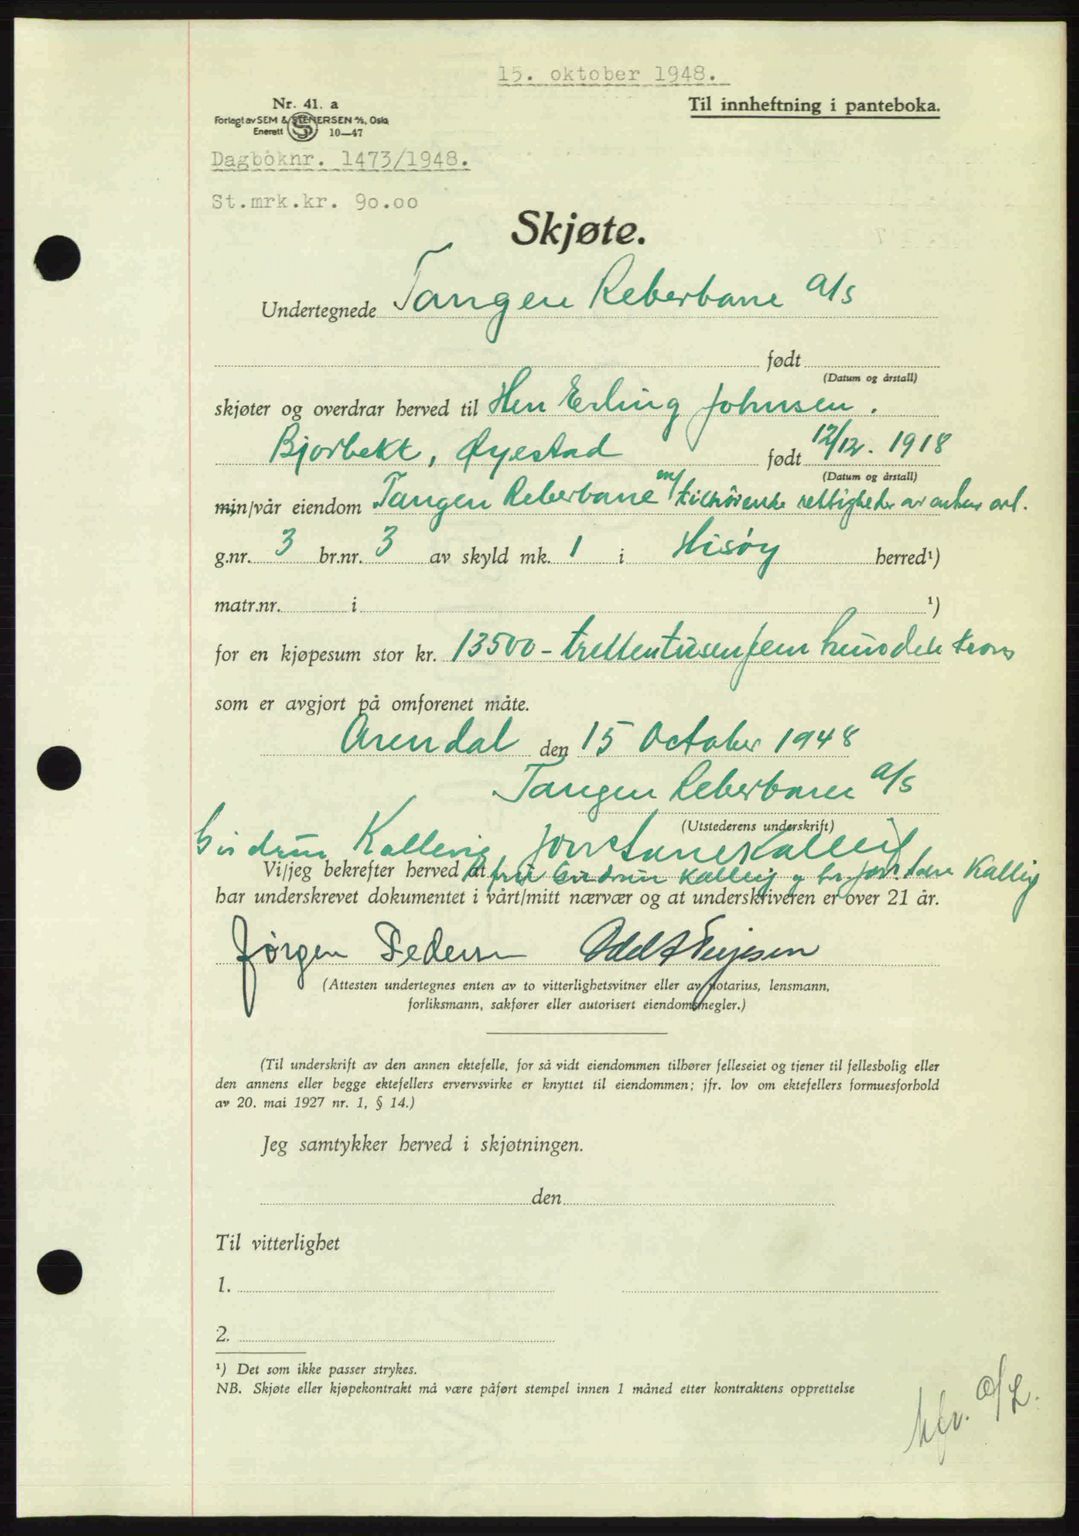 15. oktober 1948.
Nr. 41. a
Til innheftning i panteboka.
Forlagt av SEM & STENERSEN A/S, Oslo
Enerett S 10—47
Dagboknr. 1473/1948.
St.mrk.kr. 90.00
Skjøte.
Undertegnede Tangen Reberbane a/s
født
(Datum og årstall)
skjøter og overdrar herved til Herr Erling Johnsen.
Bjorbekk, Øyestad født 12/12. 1918
(Datum og årstall)
min/vår eiendom Tangen Reberbane m/ tilhørende rettigheter av
g.nr. 3 br.nr. 3 av skyld mk. 1 i Hisøy herred¹)
matr.nr. i ¹)
for en kjøpesum stor kr. 13500 - trettentusenfemhundrede kroner
som er avgjort på omforenet måte.
Arendal den 15 October 1948
Tangen Reberbane a/s
(Utstederens underskrift)
Gudrun Kallevig Jon Tune Kallevig
Vi/jeg bekrefter herved at fru Gudrun Kallevig og hr. Jon Kallevig
har underskrevet dokumentet i vårt/mitt nærvær og at underskriveren er over 21 år.
Jørgen Pedersen Odd
(Attesten undertegnes enten av to vitterlighetsvitner eller av notarius, lensmann,
forliksmann, sakfører eller autorisert eiendomsmegler.)
(Til underskrift av den annen ektefelle, for så vidt eiendommen tilhører felleseiet og tjener til fellesbolig eller
den annens eller begge ektefellers ervervsvirke er knyttet til eiendommen; jfr. lov om ektefellers formuesforhold
av 20. mai 1927 nr. 1, § 14.)
Jeg samtykker herved i skjøtningen.
den
Til vitterlighet
1.
2.
¹) Det som ikke passer strykes.
NB. Skjøte eller kjøpekontrakt må være påført stempel innen 1 måned etter kontraktens opprettelse